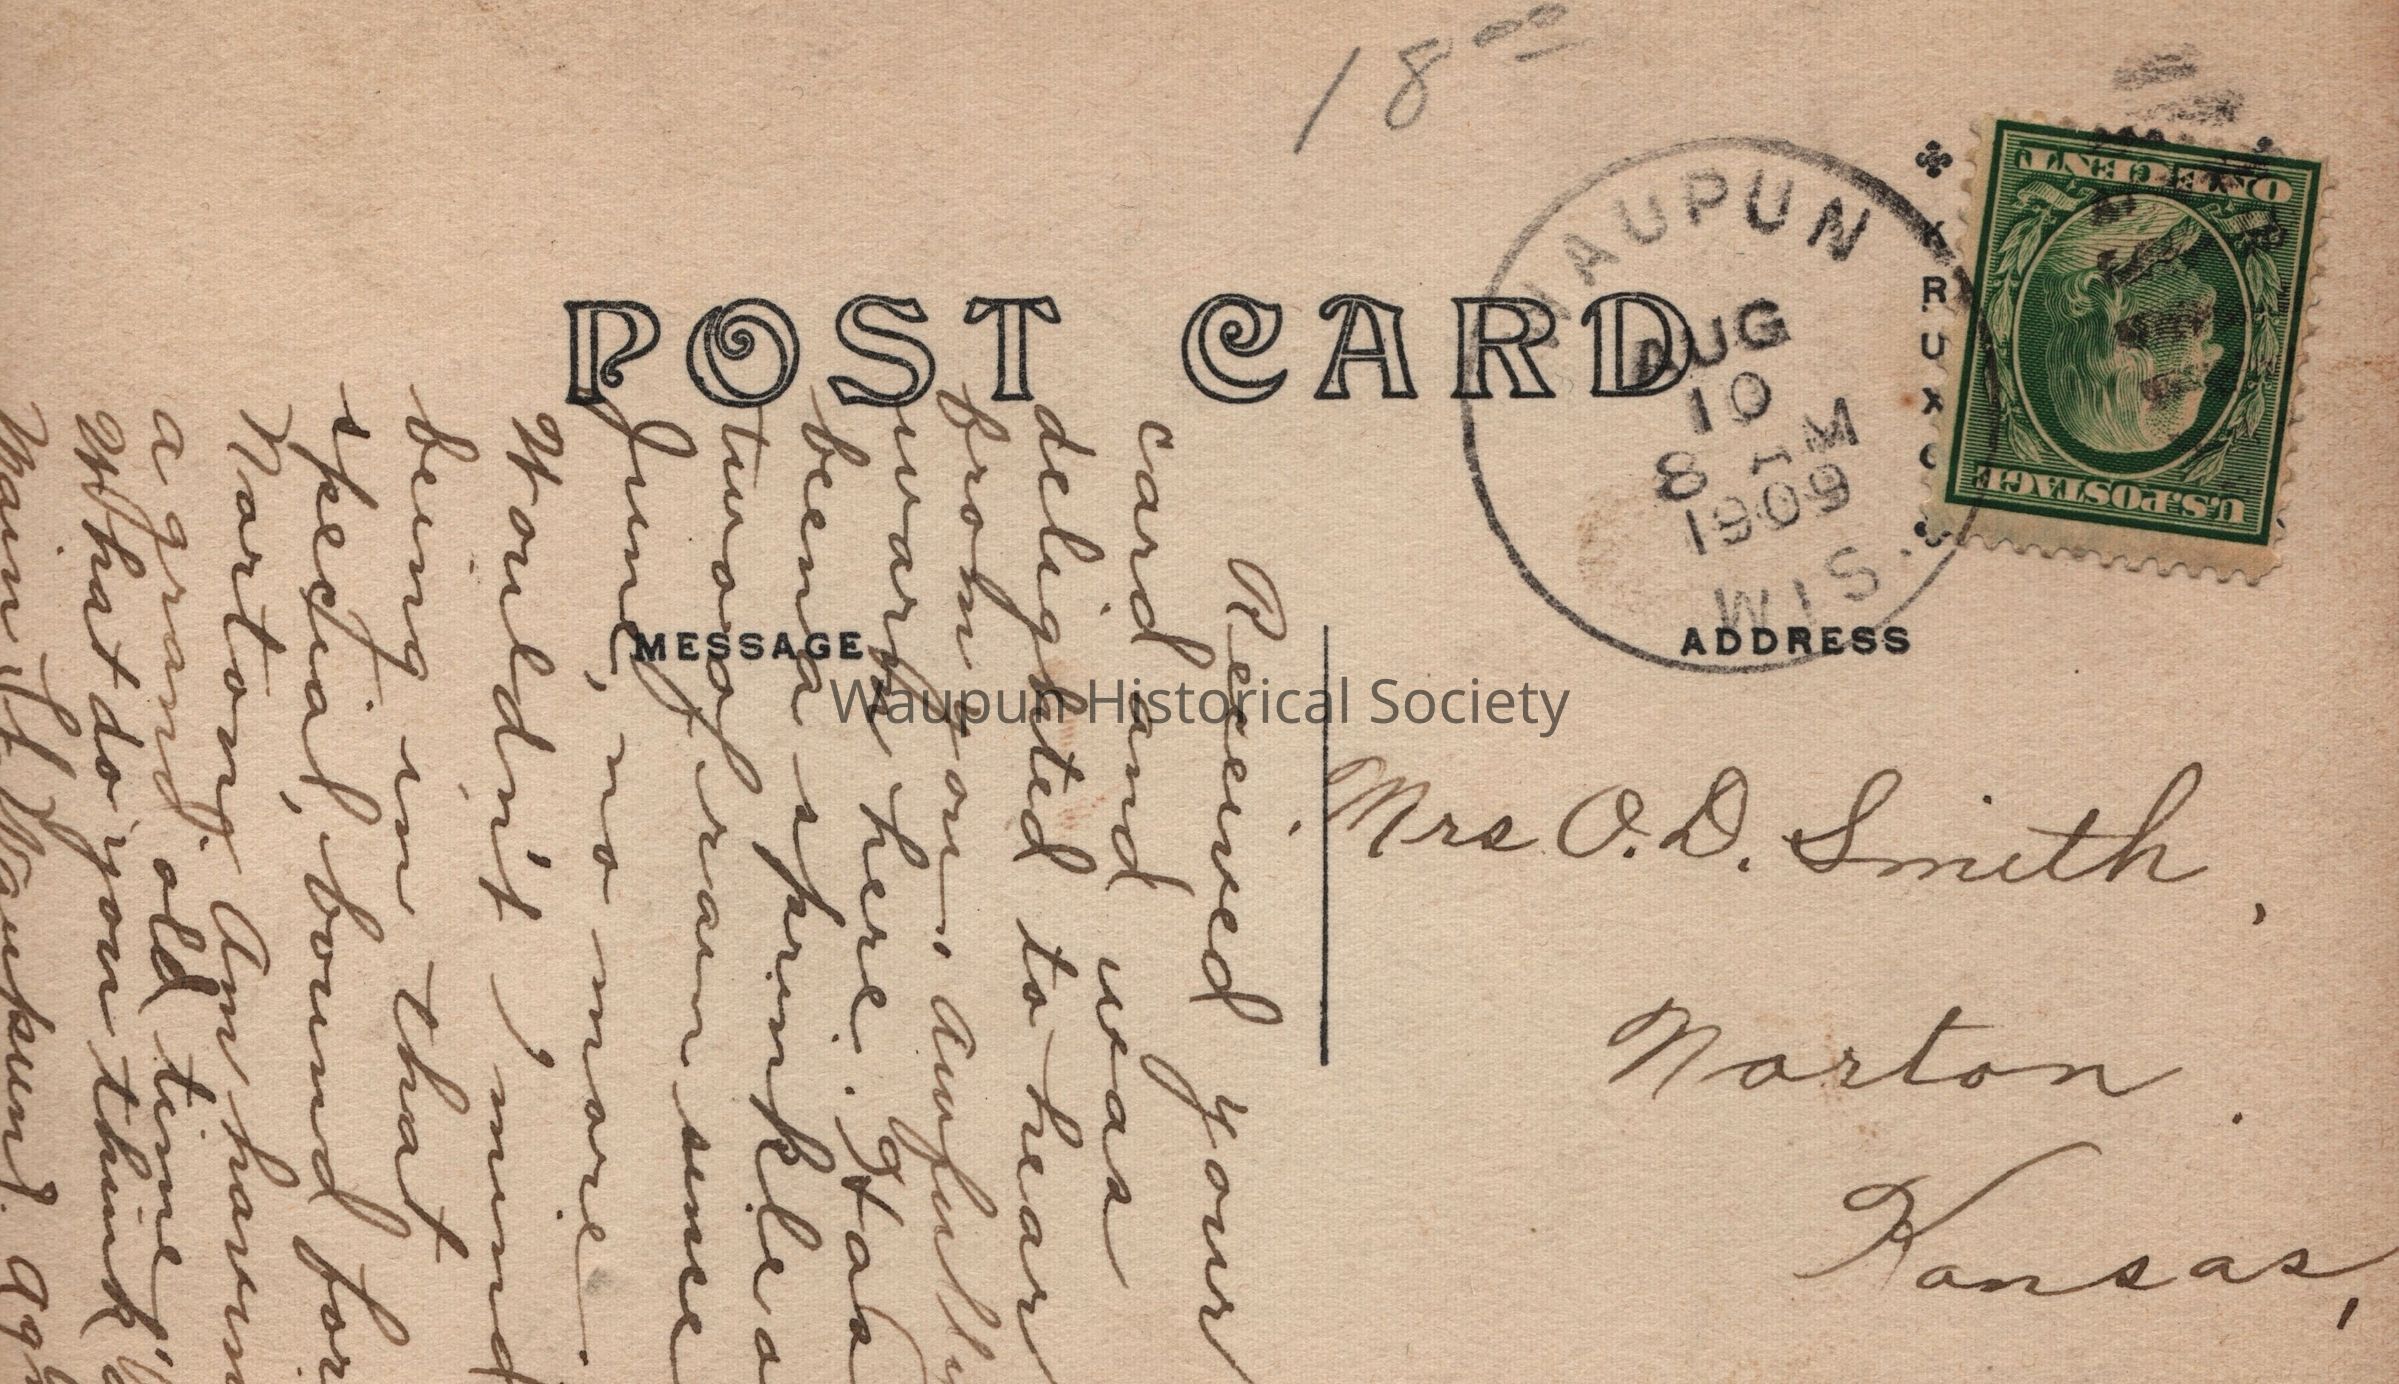 18 00
POST CARD
WAUPUN
AUG
10
8 AM
1909
WIS.
KRUXO
ONE CENT
U.S. POSTAGE
MESSAGE
ADDRESS
Mrs O. D. Smith,
Norton.
Kansas,
Received your
card and was
delighted to hear
from you. Awfully
warm here. Its
been a sprinkle a
two of rain since
June, no more.
Wouldn't, mind
being in that
special, bound for
Nortong. Am havin
a grand old time
What do you think
Main St. Waupun?
Waupun Historical Society